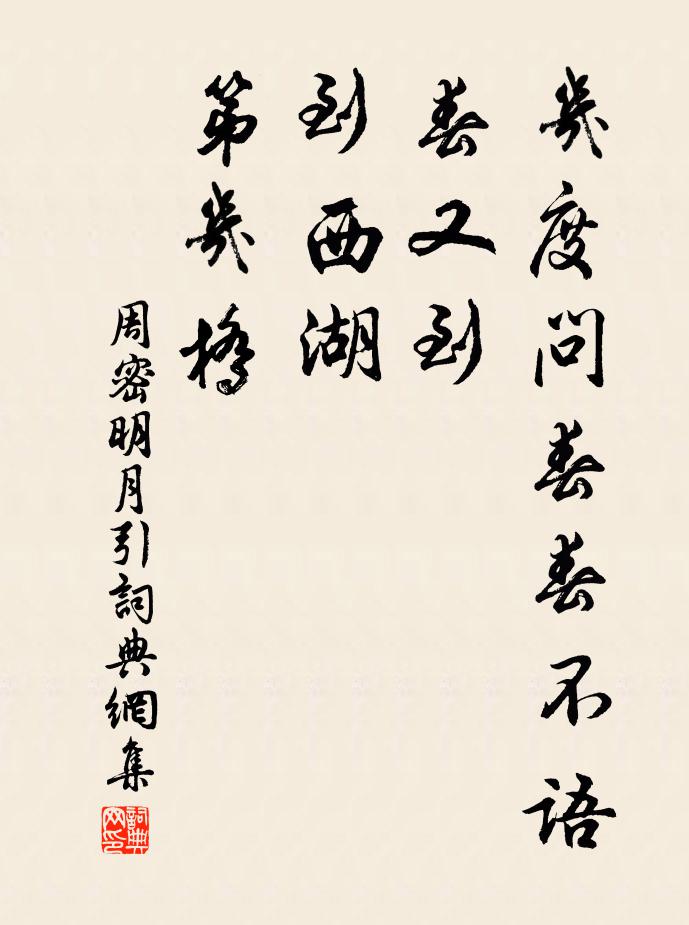 幾度問春春不語
春又到
到西湖
第幾橋
周密明月引詞典網集
詞典網印